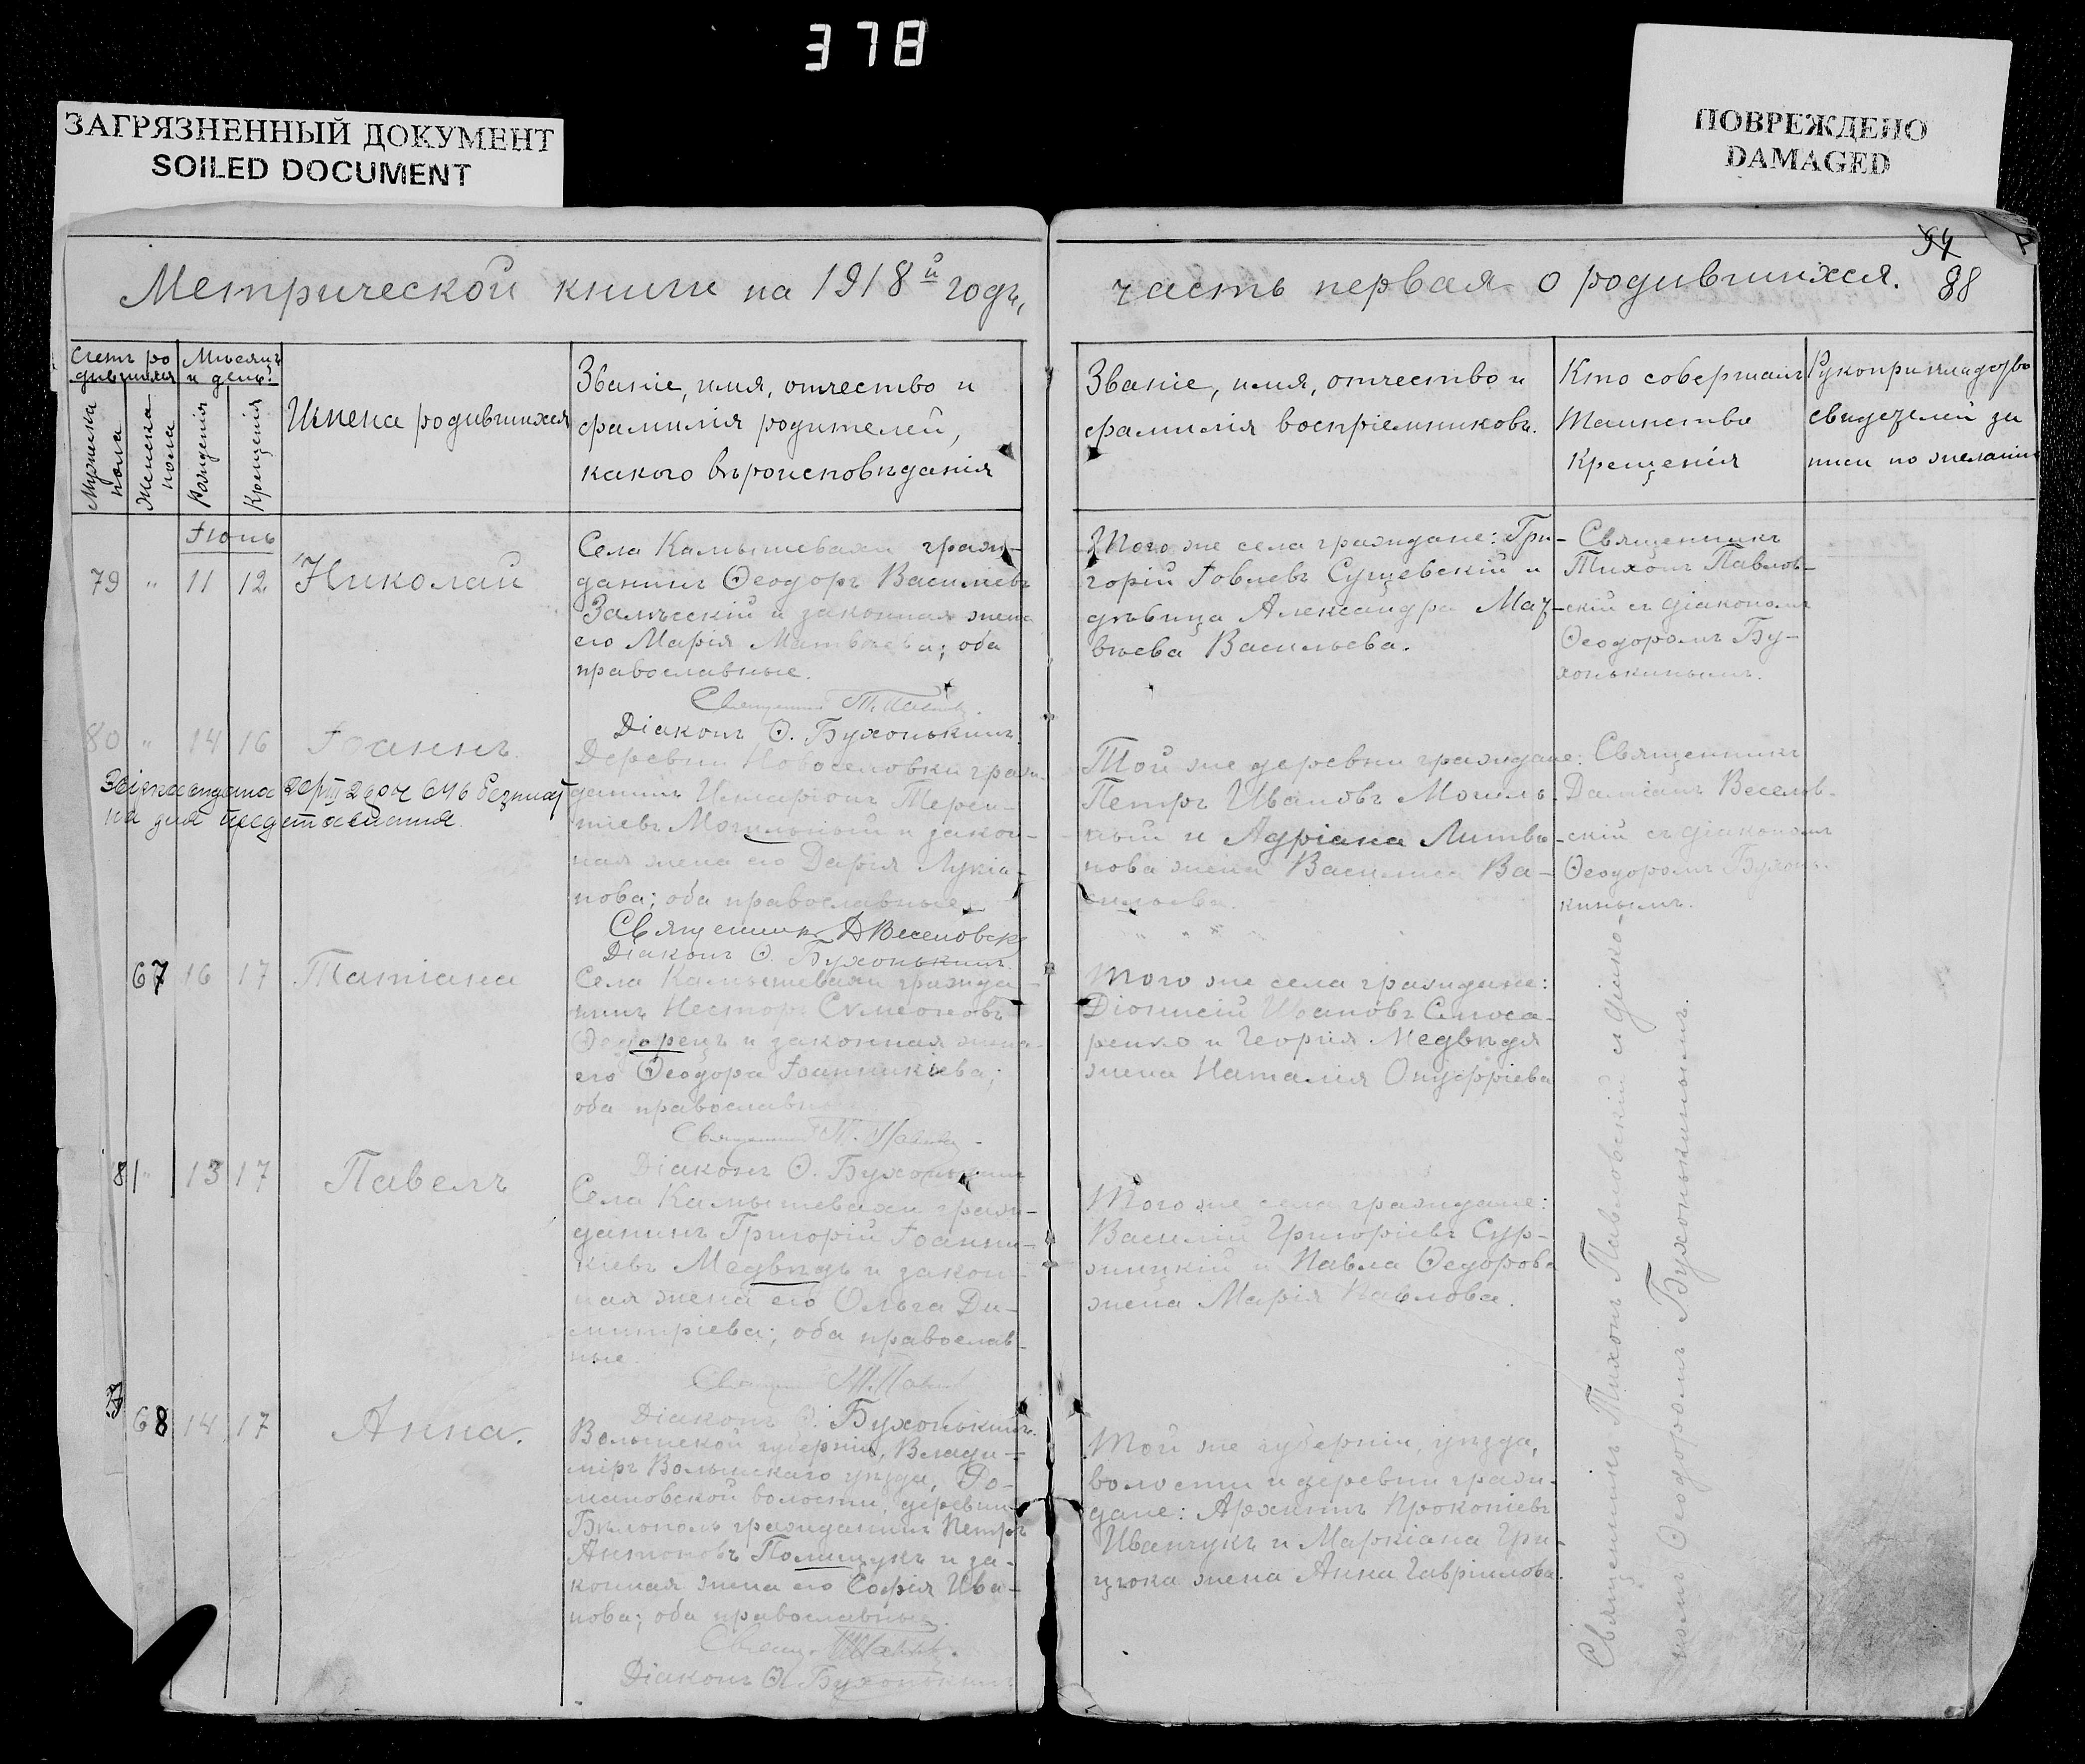 378
ЗАГРЯЗНЕННЫЙ ДОКУМЕНТ
SOILED DOCUMENT
ПОВРЕЖДЕНО
DAMAGED
94
88
Метрической книги на 1918й годъ,
часть первая о родившихся.
Счетъ ро
дившихся
Мѣсяцъ
и день.
Мужска
пола
Женска
пола
Рожденія
Крещенія
Имена родившихся
Званіе, имя, отчество и
фамилія родителей,
какого вѣроисповѣданія
Званіе, имя, отчество и
фамилія воспріемниковъ.
Кто совершалъ
Таинство
Крещенія
Рукоприкладство
свидетелей за
писи по желанію
Іюнь
79 " 11 12. Николай
Села Камышевахи граж-
данинъ Ѳеодоръ Василіевъ
Залѣсскій и законная жена
его Марія Матвѣева; оба
православные.
Священникъ Т. Павлов
Діаконъ Ѳ. Бухонькинъ.
Того же села граждане: Гри-
горій Іовлевъ Сущевскій и
дѣвица Александра Мат-
вѣева Васильева.
Священникъ
Тихонъ Павлов-
скій съ діакономъ
Ѳеодоромъ Бу-
хонькинымъ.
80 " 14 16 Іоаннъ.
Деревни Новоселовки граж-
данинъ Иларіонъ Терен-
тіевъ Могильный и закон-
ная жена его Дарія Лукіа-
нова; оба православные.
Священникъ Д Веселовск
Діаконъ Ѳ. Бухонькинъ.
Той же деревни граждане:
Петръ Ивановъ Могиль-
ный и Адріана Литви-
нова жена Василиса Ва-
сильева.
Священникъ
Даміанъ Веселов-
скій съ діакономъ
Ѳеодоромъ Бухонь-
кинымъ.
67 16 17 Татіана
Села Камышевахи гражда-
нинъ Несторъ Сѵмеоновъ
Ѳедорецъ и законная жена
его Ѳеодора Іоанникіева;
оба православные
Священникъ Т. Павлов
Діаконъ Ѳ. Бухонькинъ
Того же села граждане:
Діонисій Ивановъ Слюса-
ренко и Георгія Медвѣдя
жена Наталія Онуфріева
81 " 13 17 Павелъ
Села Камышевахи граж-
данинъ Григорій Іоанни-
кіевъ Медвѣдь и закон-
ная жена его Ольга Ди-
митріева; оба православ-
ные.
Священ Т. Павлов
Діаконъ Ѳ. Бухонькинъ.
Того же села граждане:
Василій Григоріевъ Сур-
жицкій и Павла Ѳедорова
жена Марія Павлова.
68 14 17 Анна.
Волынской губерніи, Влади-
міръ Волынскаго уѣзда,
волости, деревни
Бѣлополь гражданинъ Петръ
Антоновъ Полищукъ и за-
конная жена его Софія Ива-
нова; оба православные.
Діаконъ Ѳ. Бухонькинъ
Той же губерніи, уѣзда,
волости и деревни граж-
дане: Архипъ Прокопіевъ
Иванчукъ и Маркіана Гри-
цюка жена Анна Гавріилова.
Священникъ Тихонъ Павловскій съ діако-
номъ Ѳеодоромъ Бухонькинымъ.